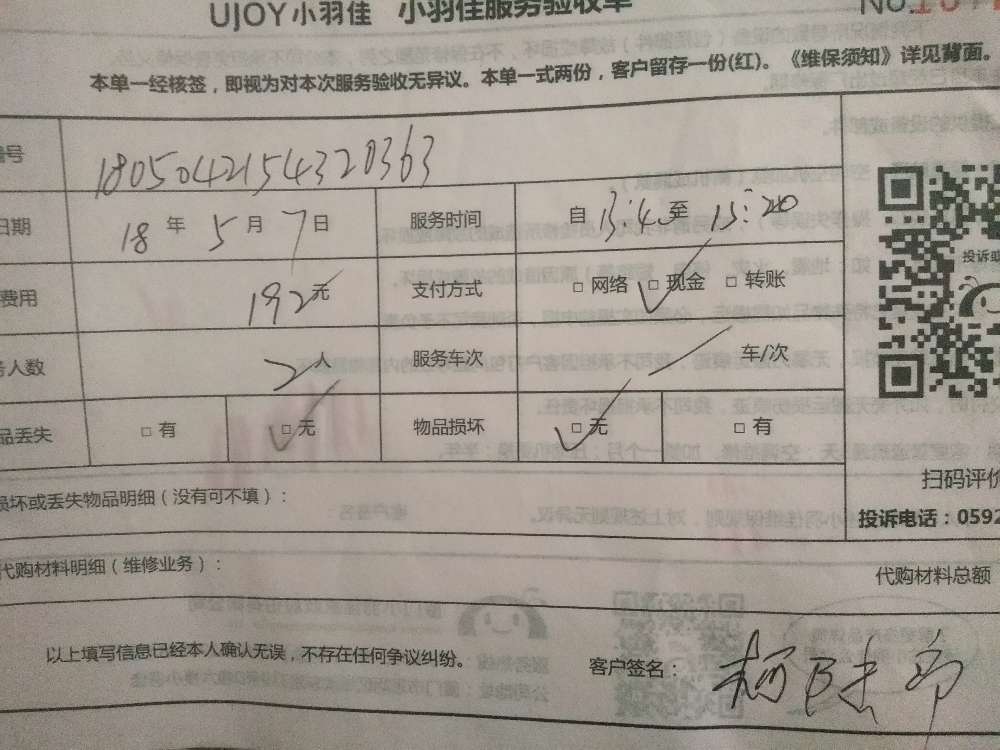 UJOY小羽佳 小羽佳服务验收单
本单一经核签，即视为对本次服务验收无异议。本单一式两份，客户留存一份(红)。《维保须知》详见背面。
号 1805042154320363
日期 18 年 5 月 7 日 服务时间 自 13:45 至 15:20
费用 192元 支付方式 □ 网络 ☑ 现金 □ 转账
人数 2人 服务车次 / 车/次
品丢失 □ 有 ☑ 无 物品损坏 ☑ 无 □ 有
损坏或丢失物品明细（没有可不填）：
投诉或
扫码评价
投诉电话：0592
代购材料明细（维修业务）：
代购材料总额
以上填写信息已经本人确认无误，不存在任何争议纠纷。
客户签名：